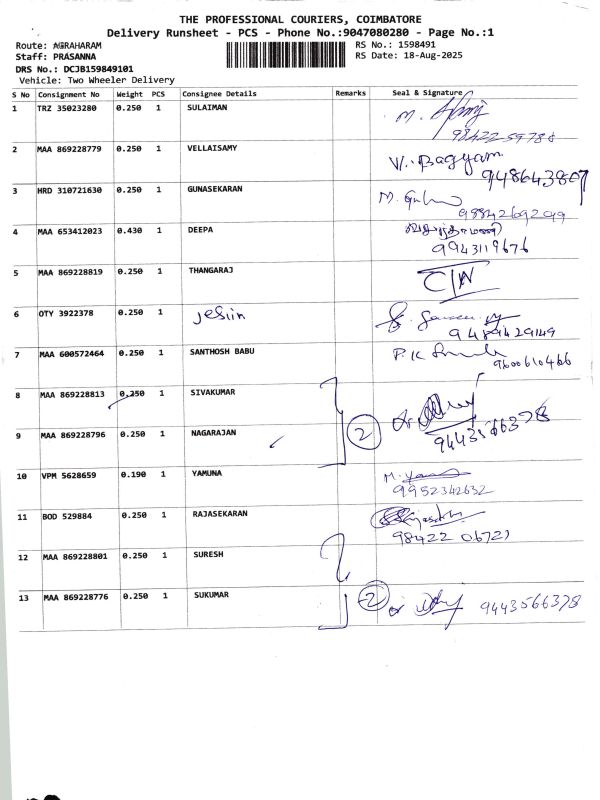 THE PROFESSIONAL COURIERS, COIMBATORE
Delivery Runsheet - PCS - Phone No.:9047080280 - Page No.:1
Route: AGRAHARAM
RS No.: 1598491
Staff: PRASANNA
RS Date: 18-Aug-2025
DRS No.: DCJB159849101
Vehicle: Two Wheeler Delivery
S No Consignment No Weight PCS Consignee Details Remarks Seal & Signature
1 TRZ 35023280 0.250 1 SULAIMAN M.
2 MAA 869228779 0.250 1 VELLAISAMY V. Bagyam
948643807
3 HRD 310721630 0.250 1 GUNASEKARAN
9884269299
4 MAA 653412023 0.430 1 DEEPA வசந்தாமணி
9943119676
5 MAA 869228819 0.250 1 THANGARAJ C/W
6 OTY 3922378 0.250 1 Jeslin
9489429149
7 MAA 600572464 0.250 1 SANTHOSH BABU P.K
9600610466
8 MAA 869228813 0.250 1 SIVAKUMAR
2
9 MAA 869228796 0.250 1 NAGARAJAN 9443566378
10 VPM 5628659 0.190 1 YAMUNA M.
9952342632
11 BOD 529884 0.250 1 RAJASEKARAN
98422 06721
12 MAA 869228801 0.250 1 SURESH
13 MAA 869228776 0.250 1 SUKUMAR 2 9443566378